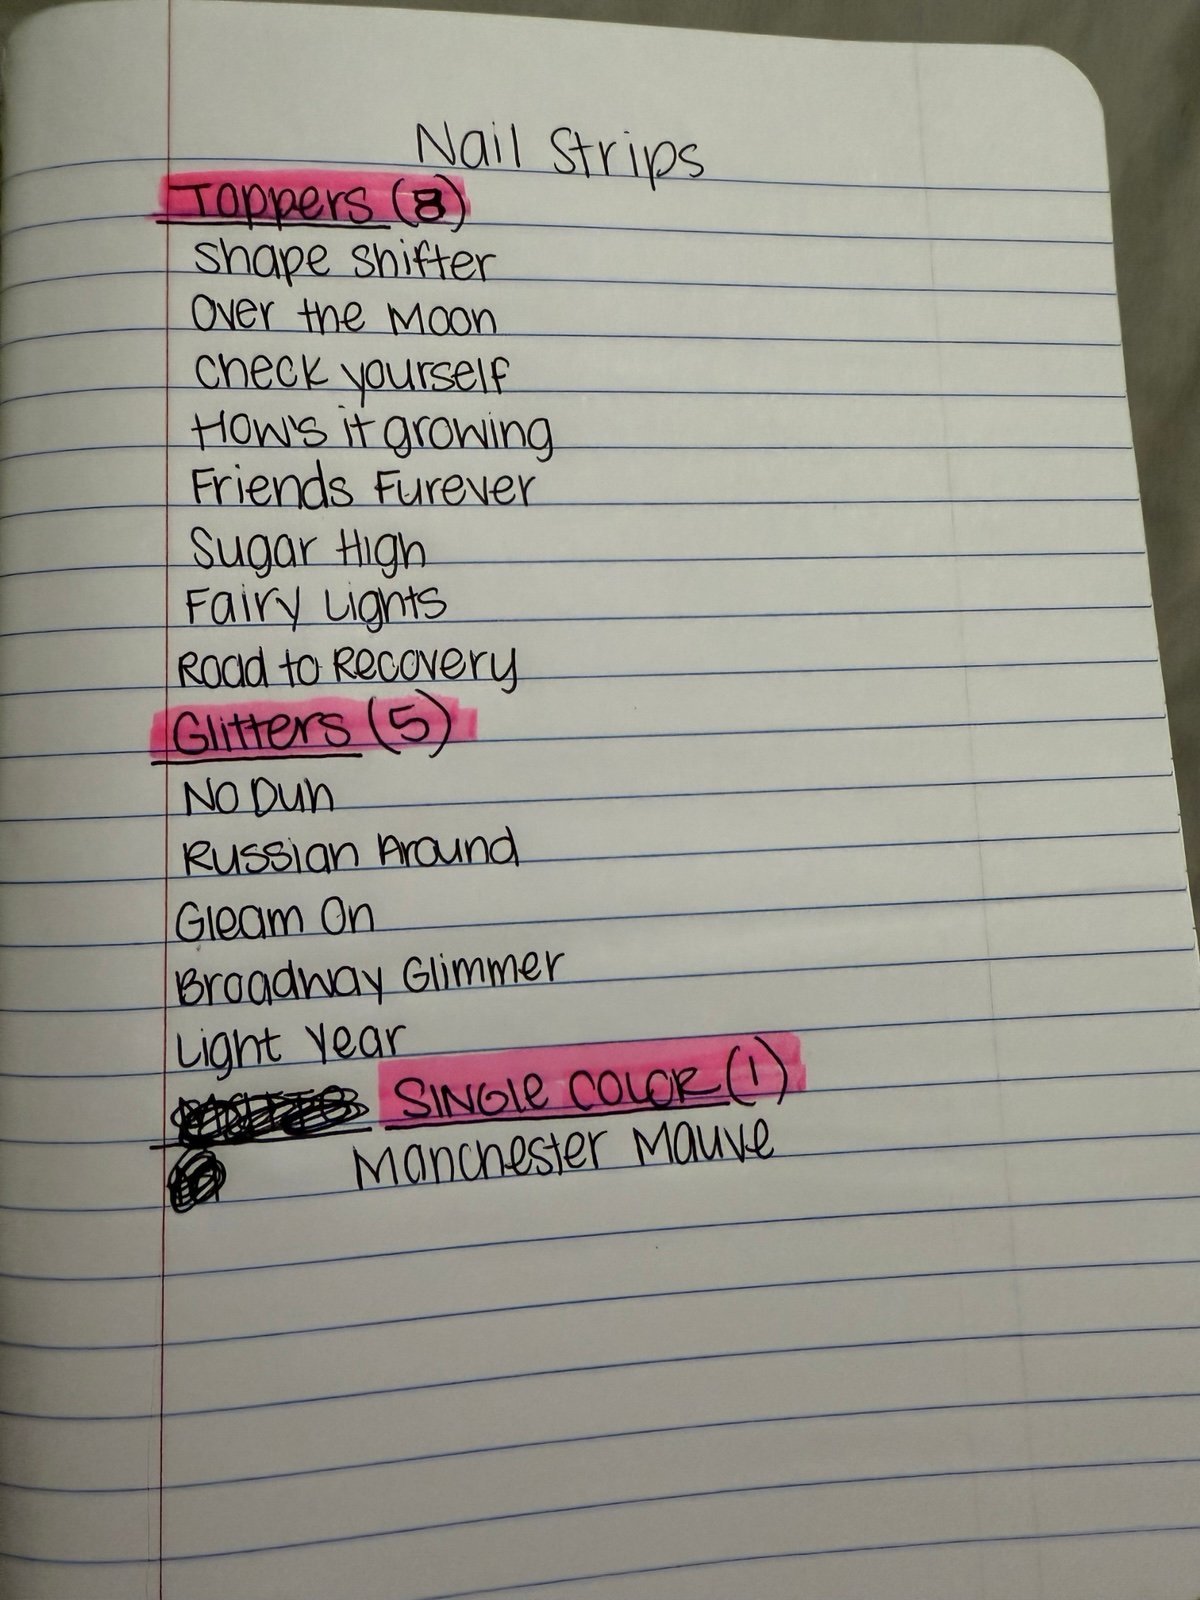 Nail Strips
Toppers (8)
Shape Shifter
Over the Moon
Check yourself
How's it growing
Friends Furever
Sugar High
Fairy Lights
Road to Recovery
Glitters (5)
No Duh
Russian Around
Gleam On
Broadway Glimmer
Light Year
SINGLE COLOR (1)
Manchester Mauve